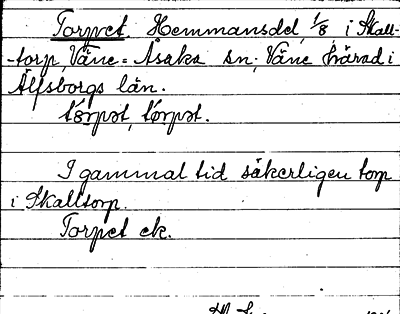 Torpet. Hemmansdel, 1/8, i Skall-
-torp, Väne-Åsaka sn; Väne härad i
Älfsborgs län.
tɵrpət, tɵrpət.
I gammal tid säkerligen torp
i Skalltorp.
Torpet ek.